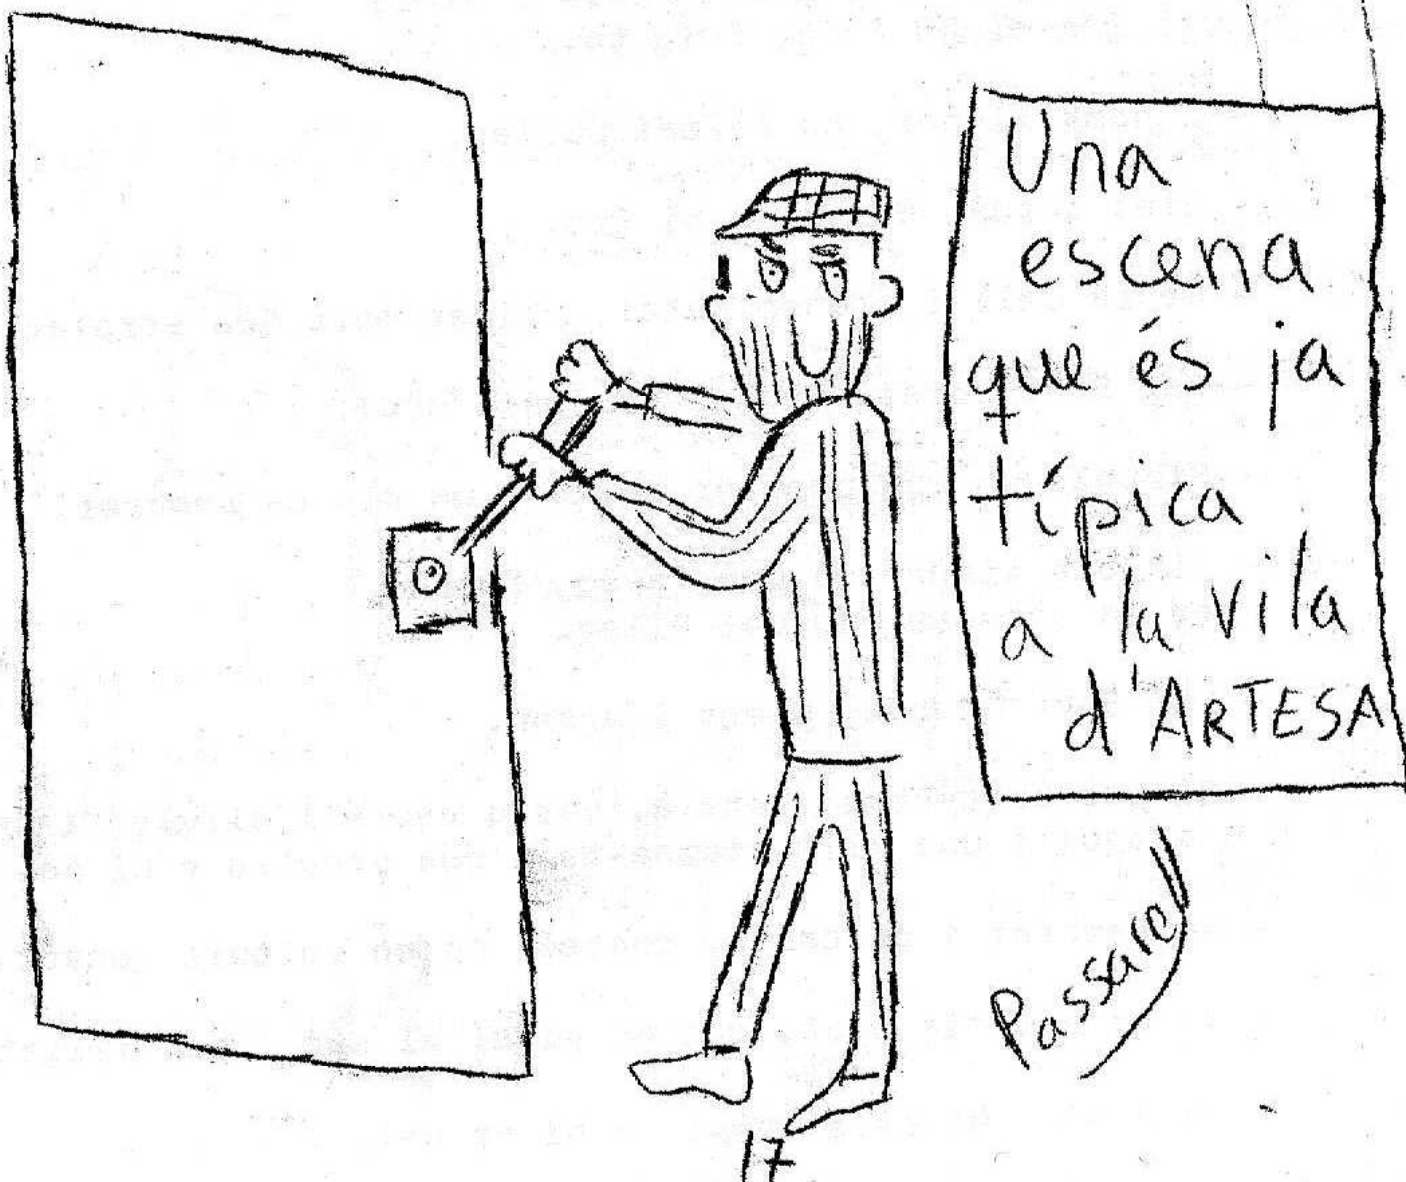 Una
escena
que és ja
típica
a la vila
d'ARTESA
Passarell
17